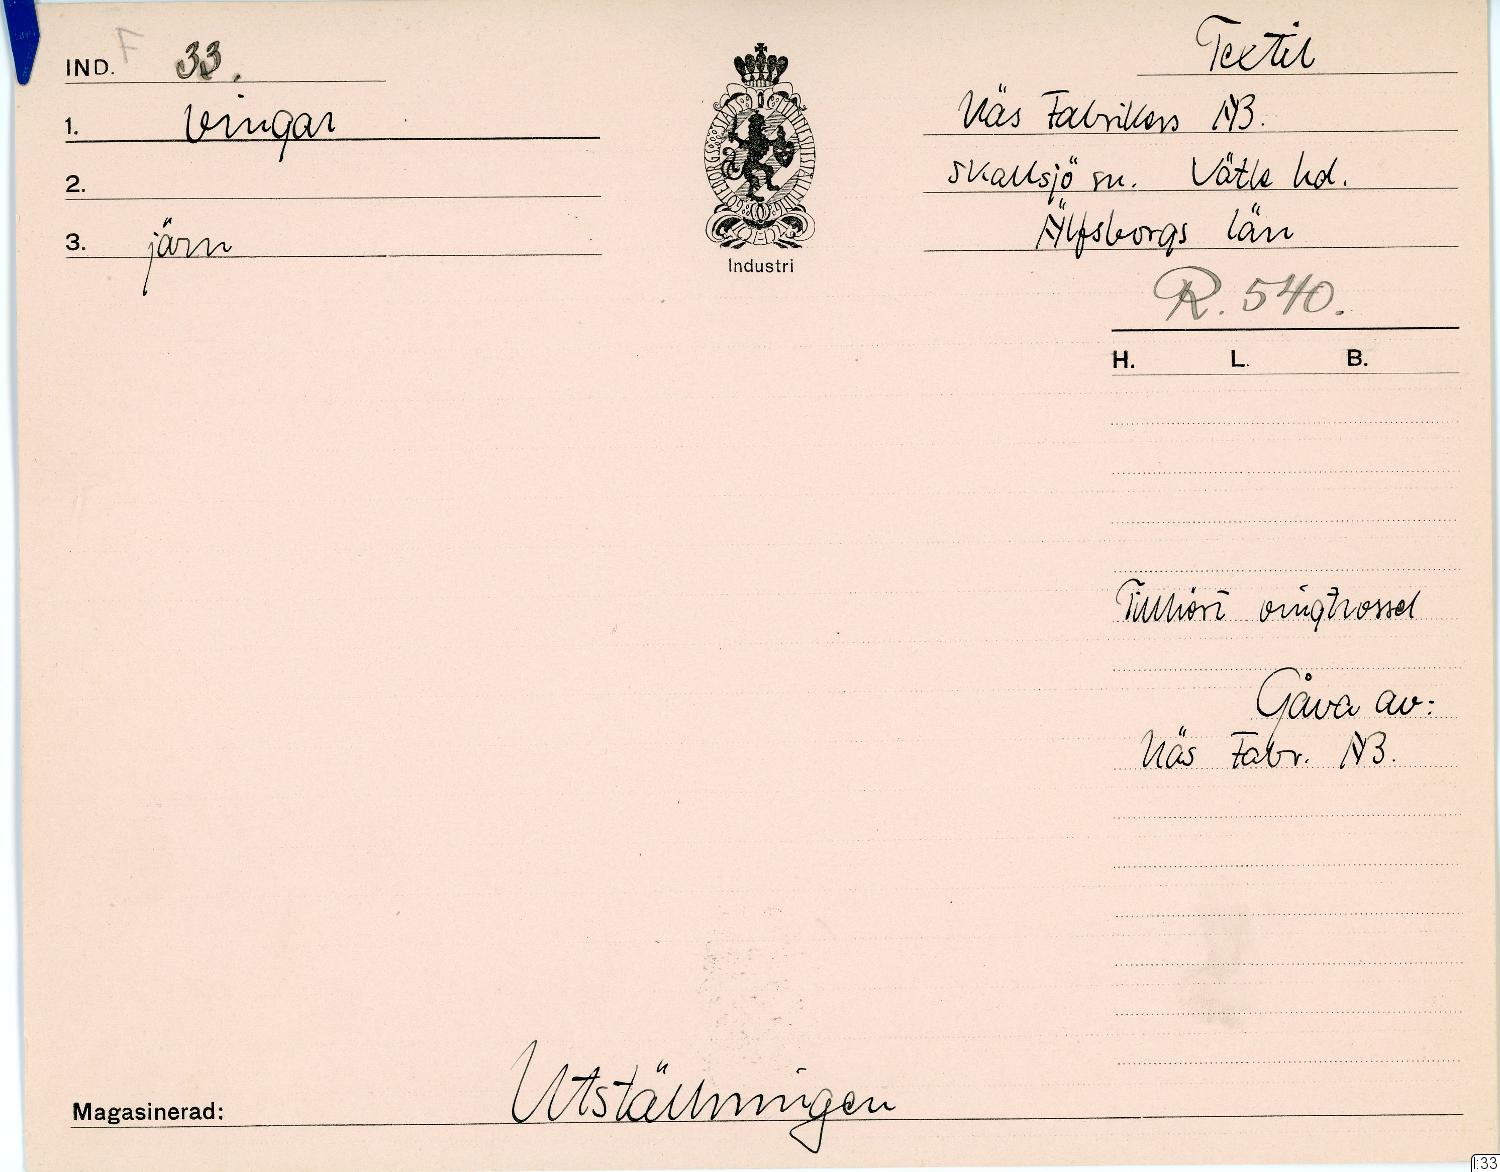 IND. F 33.
1. Vingar
2.
3. järn
Industri
Textil
Näs Fabrikers AB.
Skallsjö sn. Vätle hd.
Älfsborgs län
R. 540.
H. L. B.
Tillhört vingtrossel
Gåva av:
Näs Fabr. AB.
Magasinerad: Utställningen
I:33